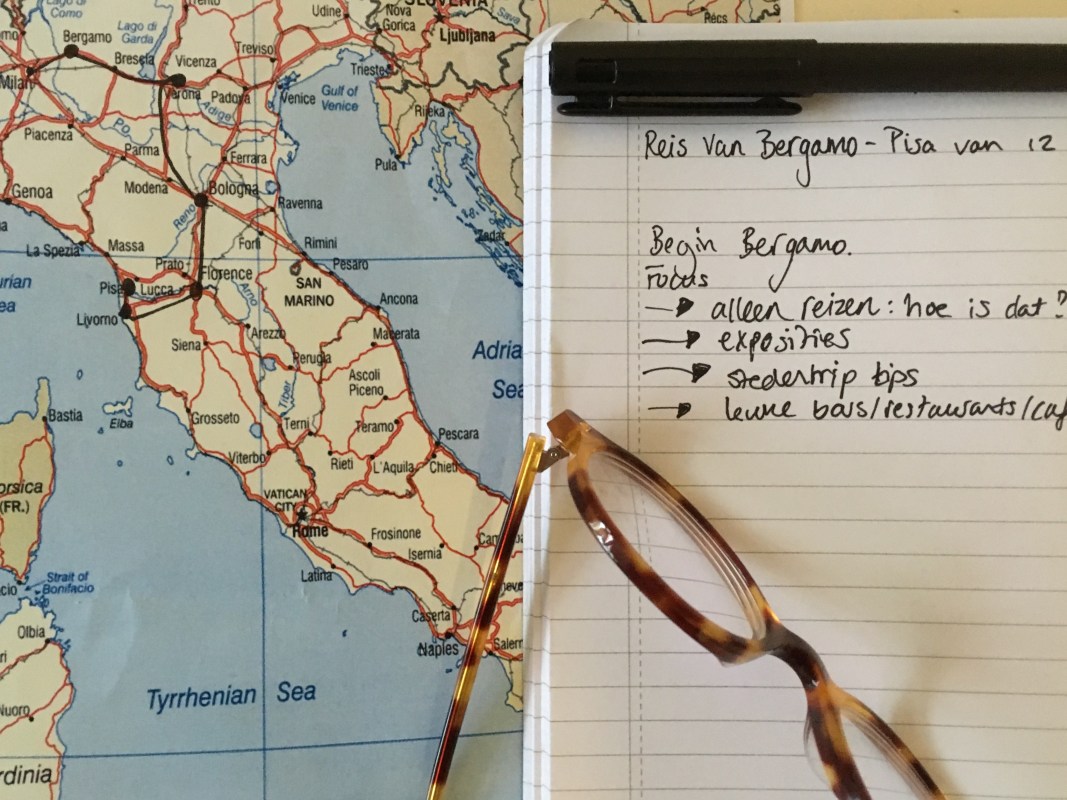 Lago di
Como
Lago di
Garda
Trento
Udine
Nova
Gorica
SLOVENIA
Sava
Ljubljana
Pécs
Bergamo
Brescia
Vicenza
Treviso
Trieste
Milan
Verona
Padova
Adige
Venice
Gulf of
Venice
Rijeka
Piacenza
Po
Parma
Ferrara
Pula
Modena
Bologna
Genoa
Reno
Ravenna
Zadar
La Spezia
Massa
Forlì
Rimini
Prato
Florence
Pesaro
Pisa
Lucca
Arno
SAN
MARINO
Ancona
Livorno
Arezzo
Macerata
Siena
Perugia
Adria
Sea
Ascoli
Piceno
Tiber
Bastia
Elba
Grosseto
Terni
Teramo
Pescara
Viterbo
Rieti
L'Aquila
Chieti
orsica
(FR.)
VATICAN
CITY
Rome
Frosinone
Isernia
Latina
Strait of
Bonifacio
Olbia
Caserta
Naples
Salern
Tyrrhenian Sea
Nuoro
rdinia
Reis van Bergamo - Pisa van 12
Begin Bergamo.
Focus
→ alleen reizen: hoe is dat?
→ exposities
→ stedentrip tips
→ leuke bars/restaurants/caf